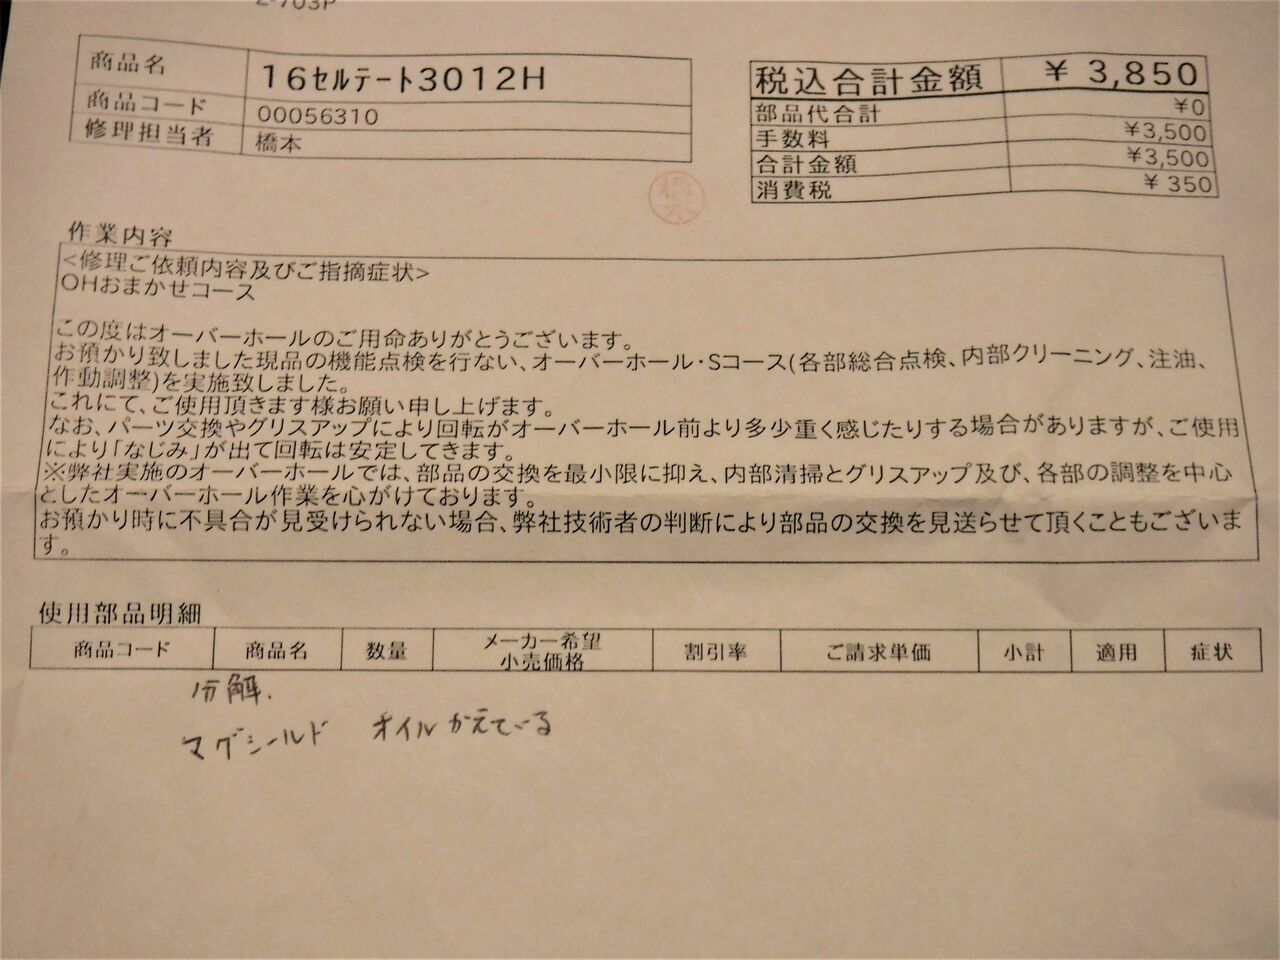 2-703P
商品名 16ｾﾙﾃｰﾄ3012H
商品コード 00056310
修理担当者 橋本
税込合計金額 ¥ 3,850
部品代合計 ¥0
手数料 ¥3,500
合計金額 ¥3,500
消費税 ¥ 350
橋本
作業内容
<修理ご依頼内容及びご指摘症状>
OHおまかせコース
この度はオーバーホールのご用命ありがとうございます。
お預かり致しました現品の機能点検を行ない、オーバーホール・Sコース(各部総合点検、内部クリーニング、注油、
作動調整)を実施致しました。
これにて、ご使用頂きます様お願い申し上げます。
なお、パーツ交換やグリスアップにより回転がオーバーホール前より多少重く感じたりする場合がありますが、ご使用
により「なじみ」が出て回転は安定してきます。
※弊社実施のオーバーホールでは、部品の交換を最小限に抑え、内部清掃とグリスアップ及び、各部の調整を中心
としたオーバーホール作業を心がけております。
お預かり時に不具合が見受けられない場合、弊社技術者の判断により部品の交換を見送らせて頂くこともございま
す。
使用部品明細
商品コード 商品名 数量 メーカー希望小売価格 割引率 ご請求単価 小計 適用 症状
分解.
マグシールド オイルかえている